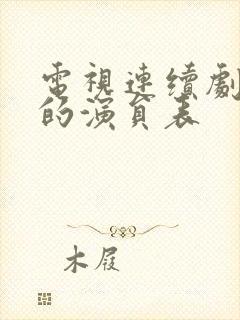 電視連續劇
的演員表
木屐